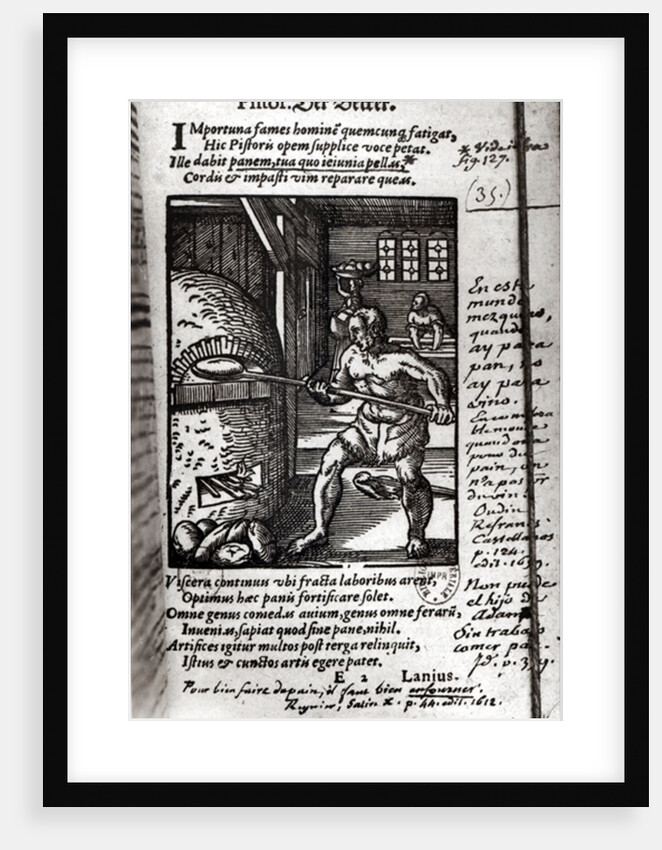 Pistor. Der Becker.
IMportuna fames hominē quemcunq; fatigat,
Hic Pistoris opem supplice voce petat.
Ille dabit panem, tua quo ieiunia pellas,*
Cordis & impasti vim reparare queas.
* Vide infra
fig. 127.
(35.)
En este
mundo
mezquino,
quando
ay para
pan, no
ay para
vino.
pain, on
n'a pas
du vin.
Oudin
Refranes
Castellanos
p. 124.
edit. 1659.
Non puede
el hijo de
Adam
sin trabajo
comer pan.
Id. p.
Viscera continuis vbi fracta laboribus arent,
Optimus hæc panis fortificare solet.
Omne genus comedas auium, genus omne ferarū,
Inuenias, sapiat quod sine pane, nihil.
Artifices igitur multos post terga relinquit,
Istius & cunctos artis egere patet.
E 2 Lanius.
Pour bien faire du pain, il faut bien enfourner.
Regnier, Satir X. p. 44. edit. 1612.